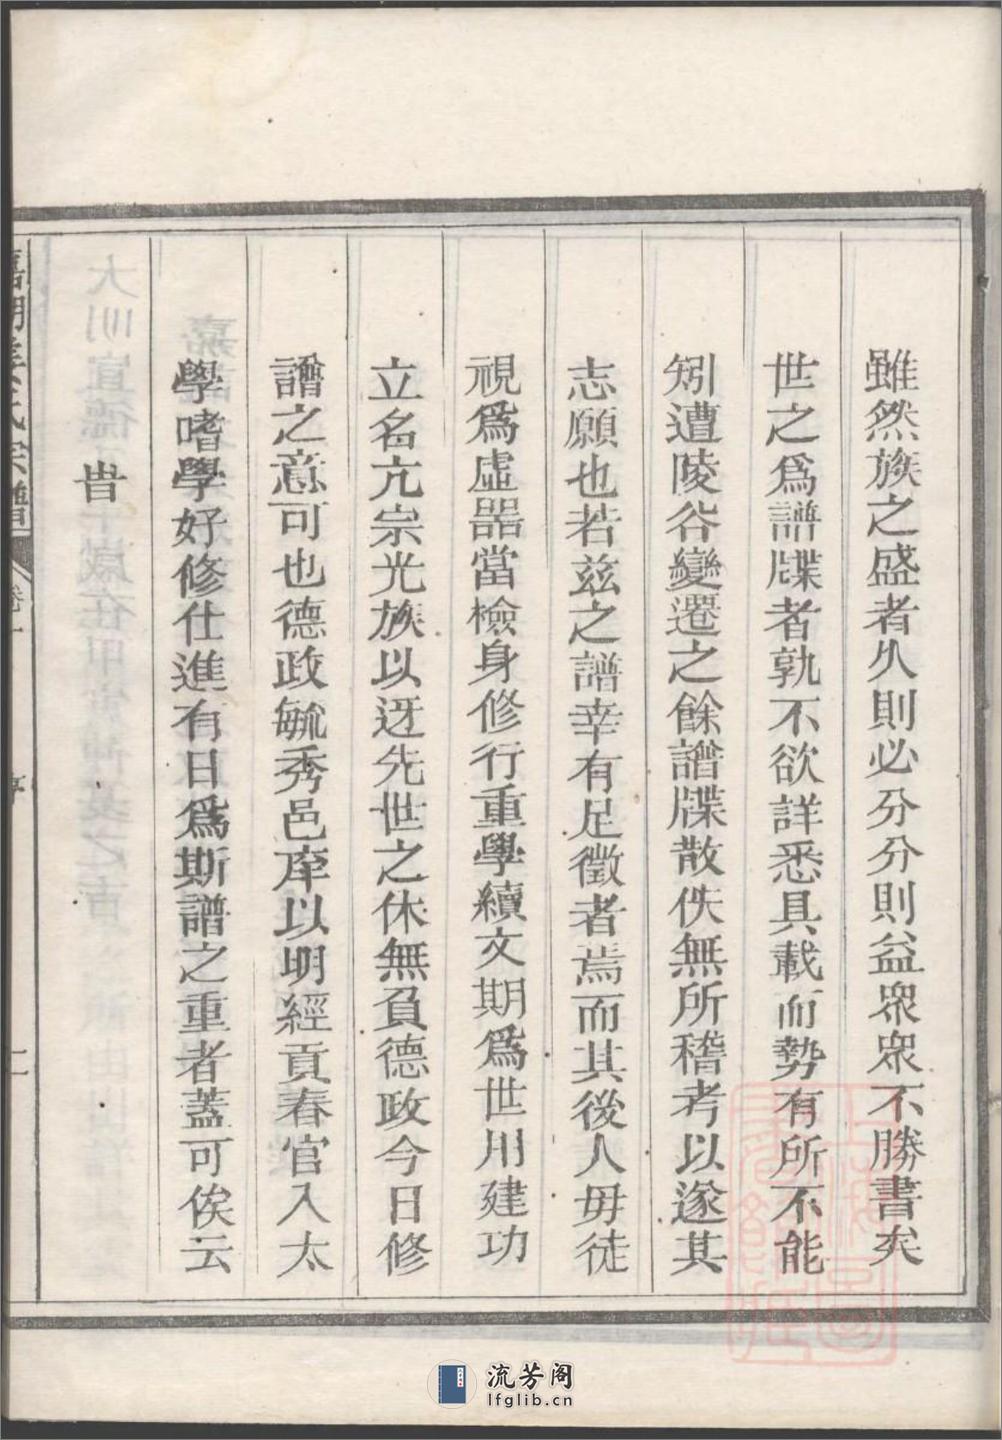 雖然族之盛者久則必分分則益眾眾不勝書矣
世之爲譜牒者孰不欲詳悉具載而勢有所不能
矧遭陵谷變遷之餘譜牒散佚無所稽考以遂其
志願也若茲之譜幸有足徵者焉而其後人毋徒
視爲虛器當檢身修行重學續文期爲世用建功
立名亢宗光族以迓先世之休無負德政今日修
譜之意可也德政毓秀邑庠以明經貢春官入太
學嗜學好修仕進有日爲斯譜之重者蓋可俟云
旹
氏宗譜
卷一
序
二
流芳阁
lfglib.cn